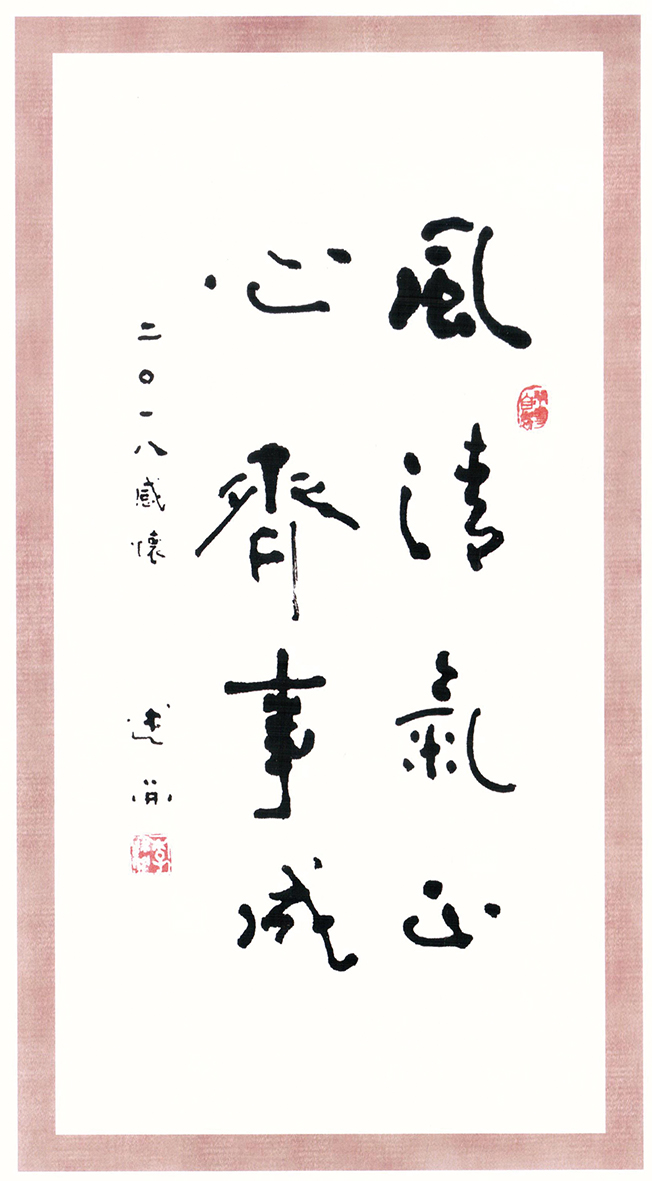 風清氣正
心齊事成
二〇一八感懷